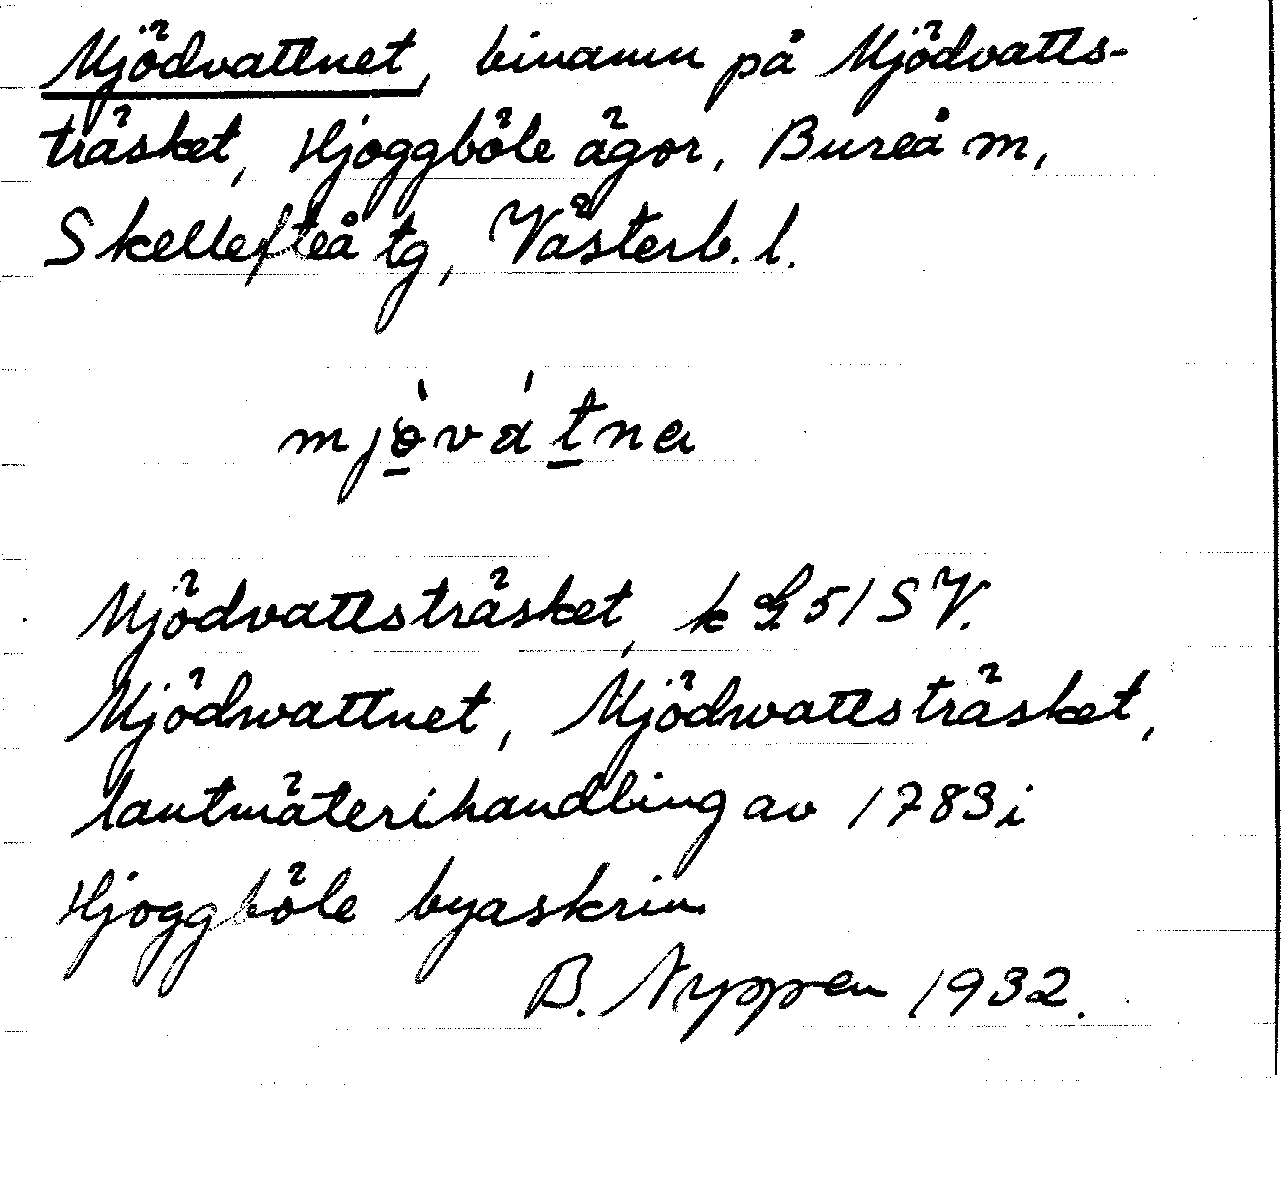 Mjödvattnet, binamn på Mjödvatts-
träsket, Hjoggböle ägor, Bureå m,
Skellefteå tg, Västerb. l.
mjò̲vát̲na
Mjödvattsträsket, k L 51 SV.
Mjödwattnet, Mjödwattsträsket,
lantmäterihandling av 1783 i
Hjoggböle byaskrin
B. Nyppen 1932.